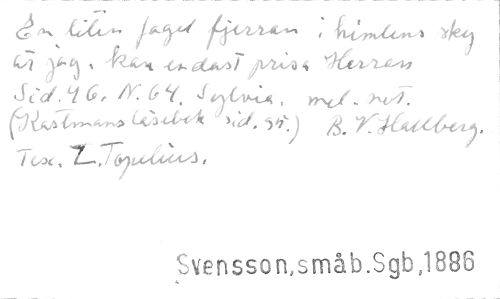 En liten fågel fjerran i himlens sky
är jag. kan endast prisa Herran
Sid. 46. N. 64. Sylvia. mel. not.
(Kastmans läsebok sid. 95.) B. V. Hallberg.
Tex. Z. Topelius.
Svensson,småb.Sgb,1886